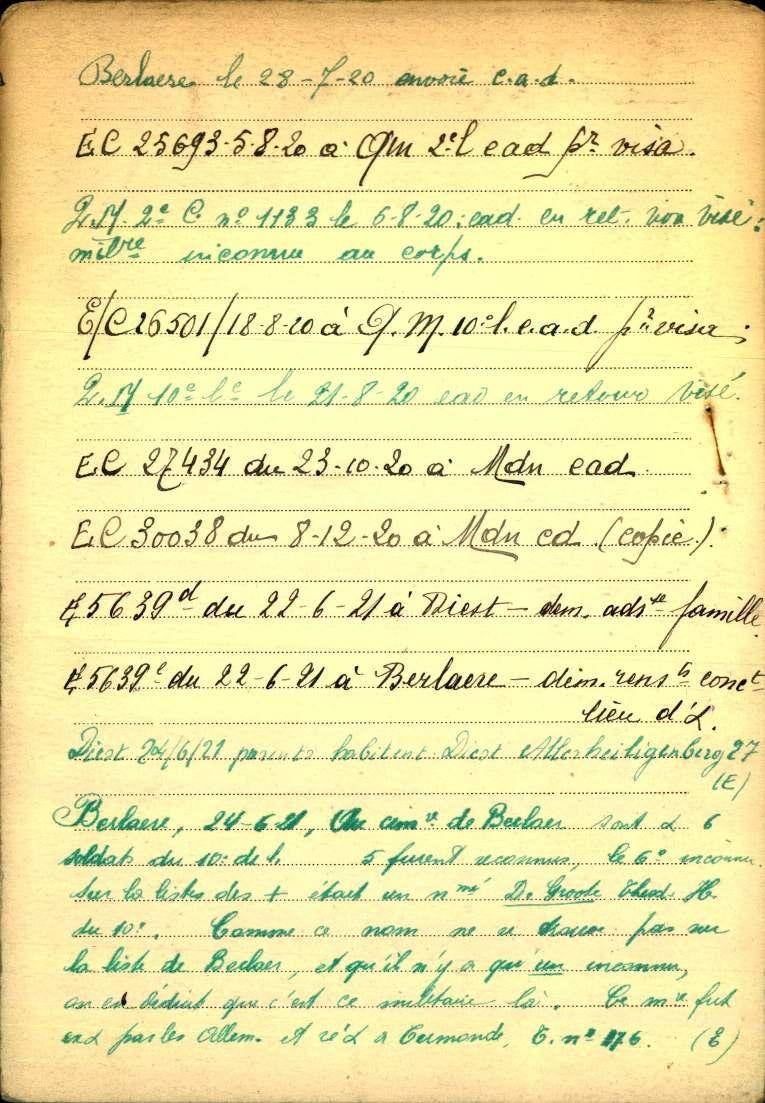 Berlaere le 28-7-20 envoie c.a.d.
E.C 25693-5-8-20 à Qm 2e l cad pr visa.
Q.M. 2e C. no 1133 le 6-8-20: cad. en ret. non visé:
milre inconnu au corps.
E/C 26501/18-8-20 à Q.M. 10e l. c.a.d. pr visa
Q.M 10e lc le 21-8-20 cad en retour visé.
E.C 27434 du 23-10-20 à Mdn cad
E.C 30038 du 8-12-20 à Mdn cd (copie).
5639d du 22-6-21 à Diest - dem. adsse famille
5639e du 22-6-21 à Berlaere - dem. rensts conct
lieu d'
Diest 24/6/21 parents habitent Diest Allerheiligenberg 27
(E)
Berlaere, 24-6-21, Au cimre de Berlaer sont 6
soldats du 10e de l. 5 furent reconnus, le 6e inconnu.
Sur la listes des + était un nmé De Groote Théod. H.
du 10e. Comme ce nom ne se trouve pas sur
la liste de Berlaer, et qu'il n'y a qu'un inconnu,
on en déduit que c'est ce militaire là. Ce mre fut
par les Allem. et à Termonde, T. no 176. (E)